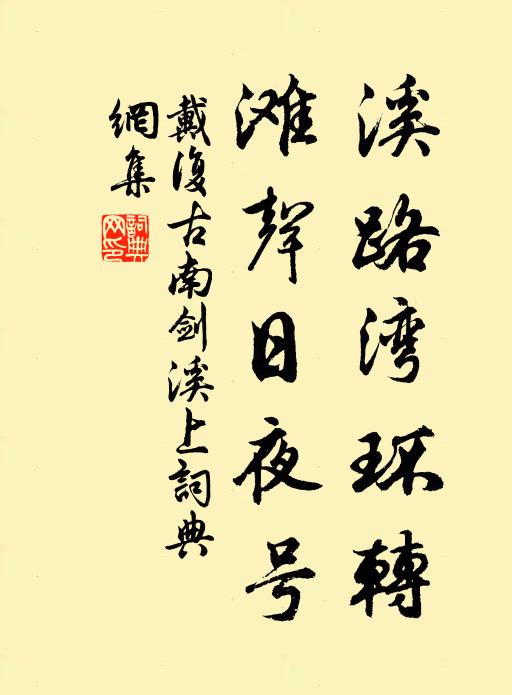 溪路湾环轉
滩聲日夜号
戴復古南剑溪上詞典
網集
詞典
网印